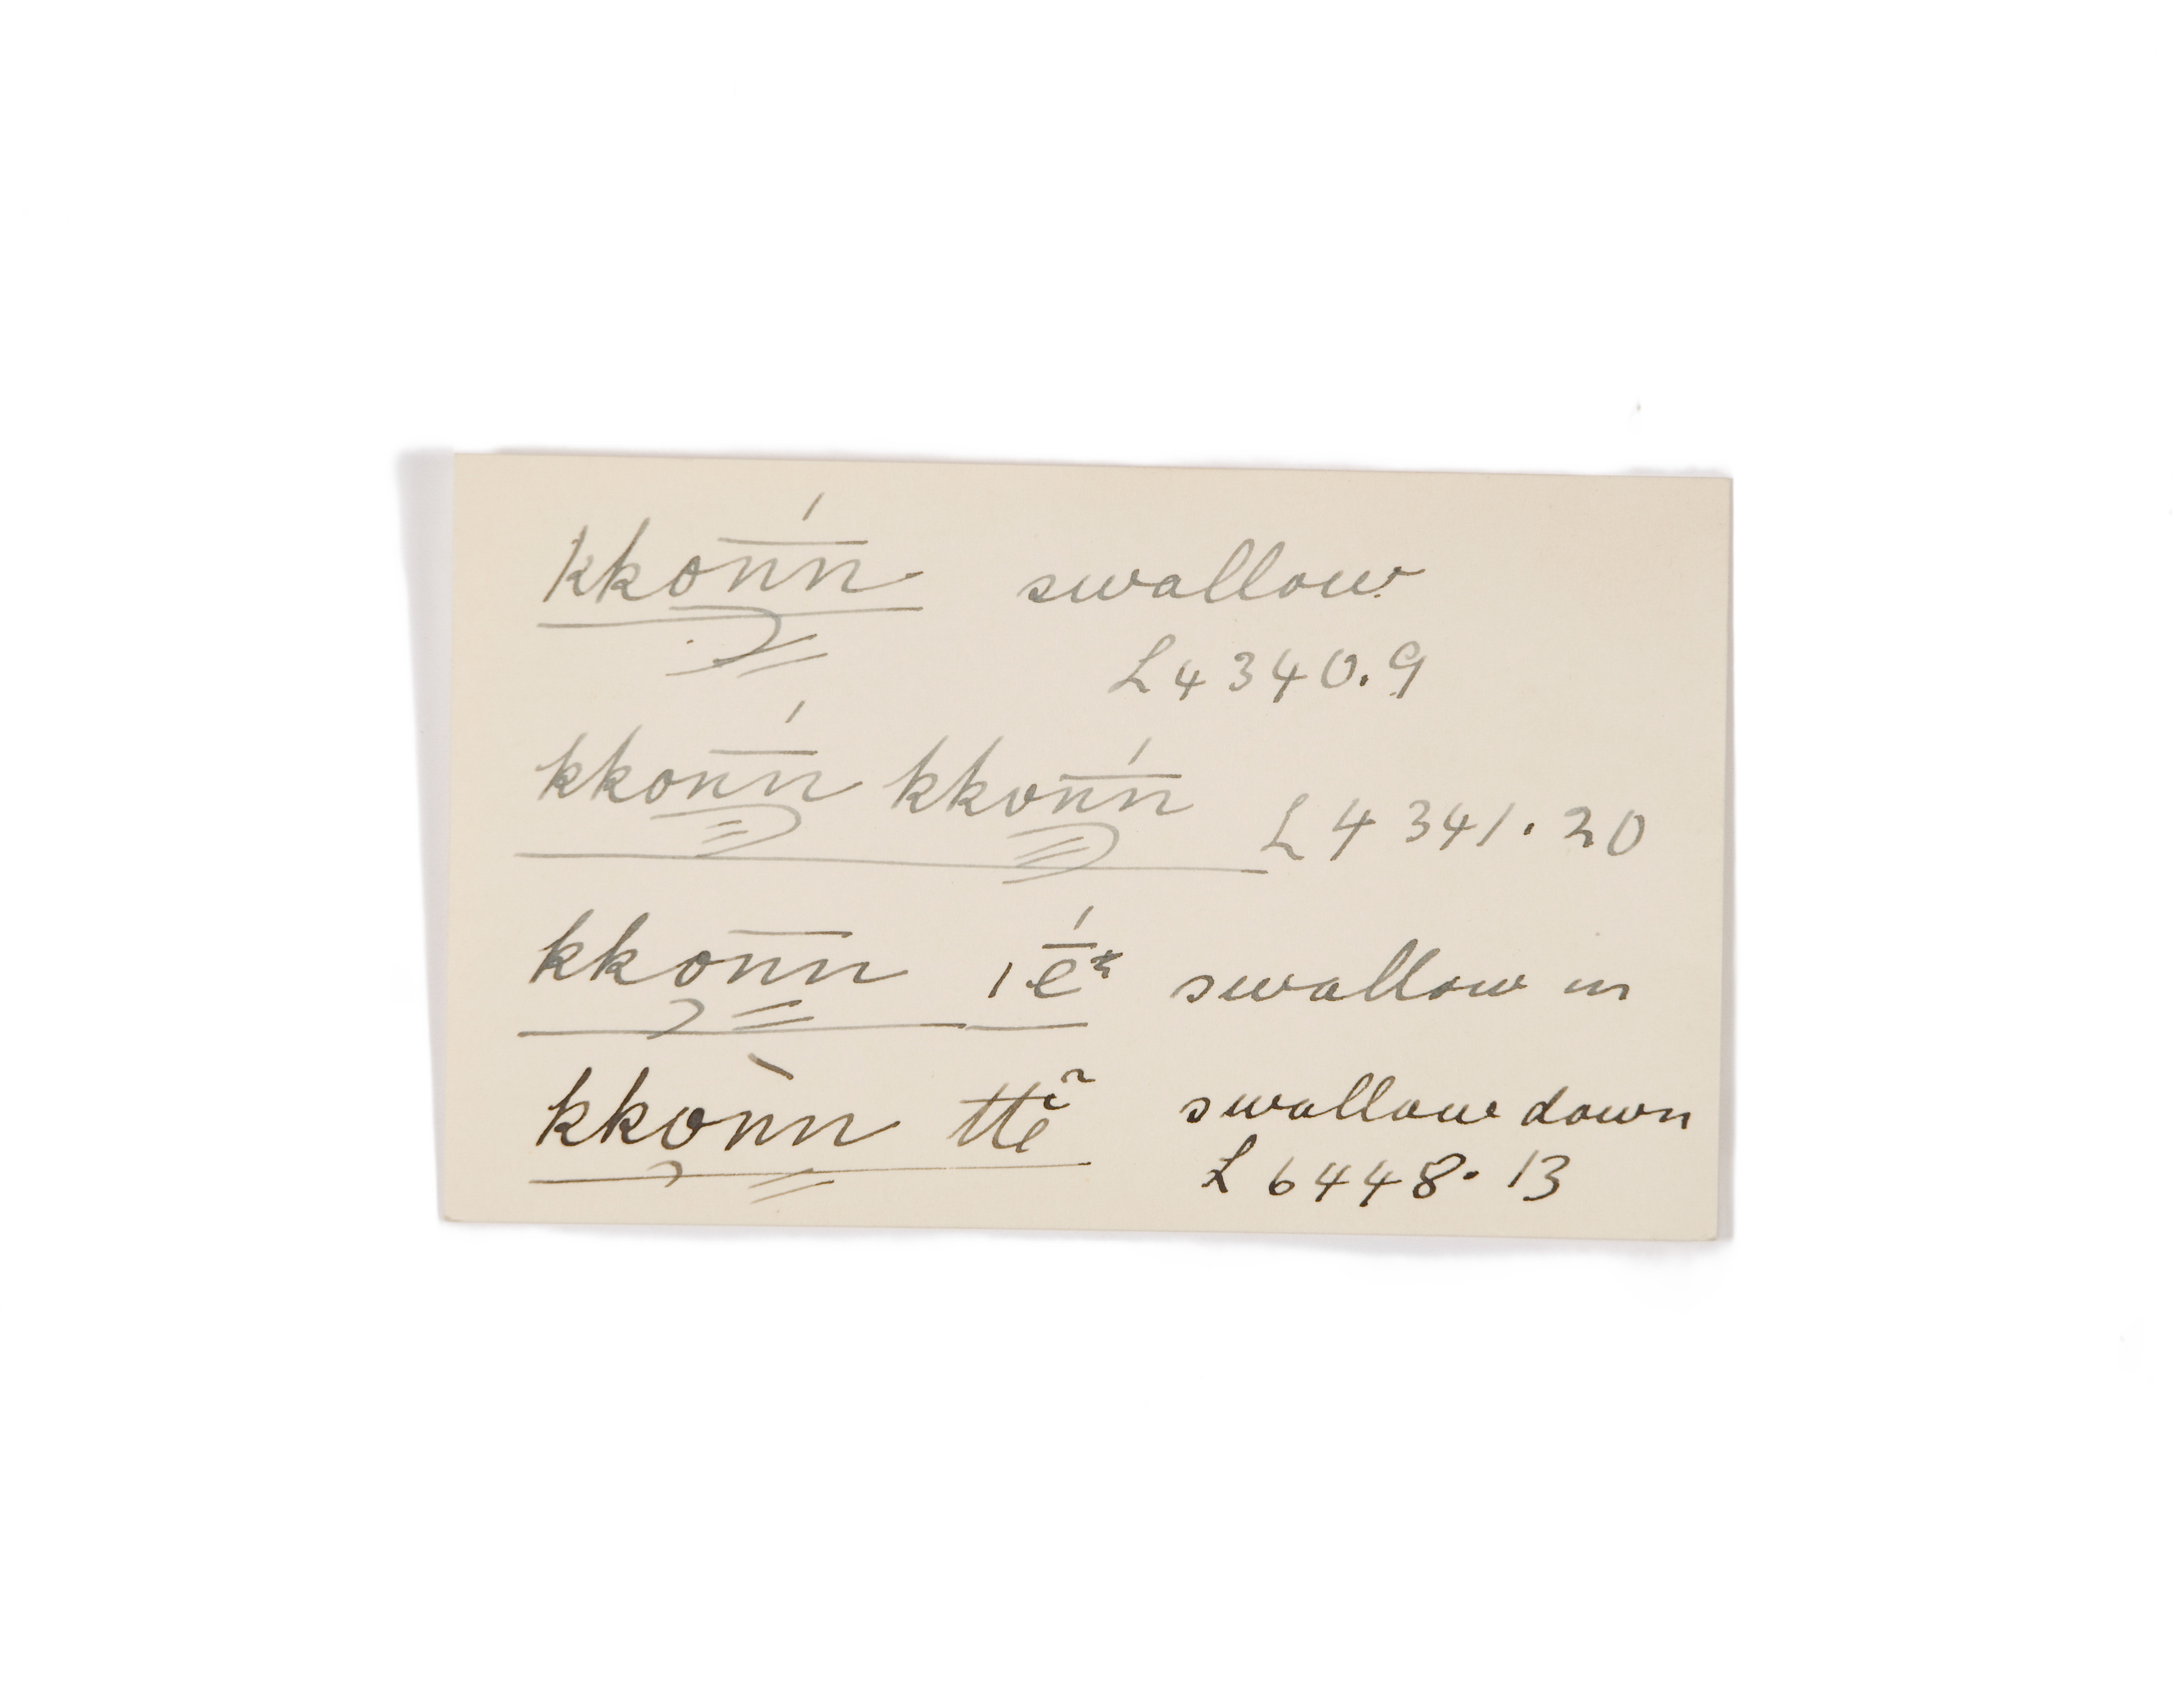 kkoń̄n swallow
L4340.9
kkoń̄n kkoń̄n L4341.20
kkon̄n swallow in
kkoǹn ttẽ swallow down
L6448.13